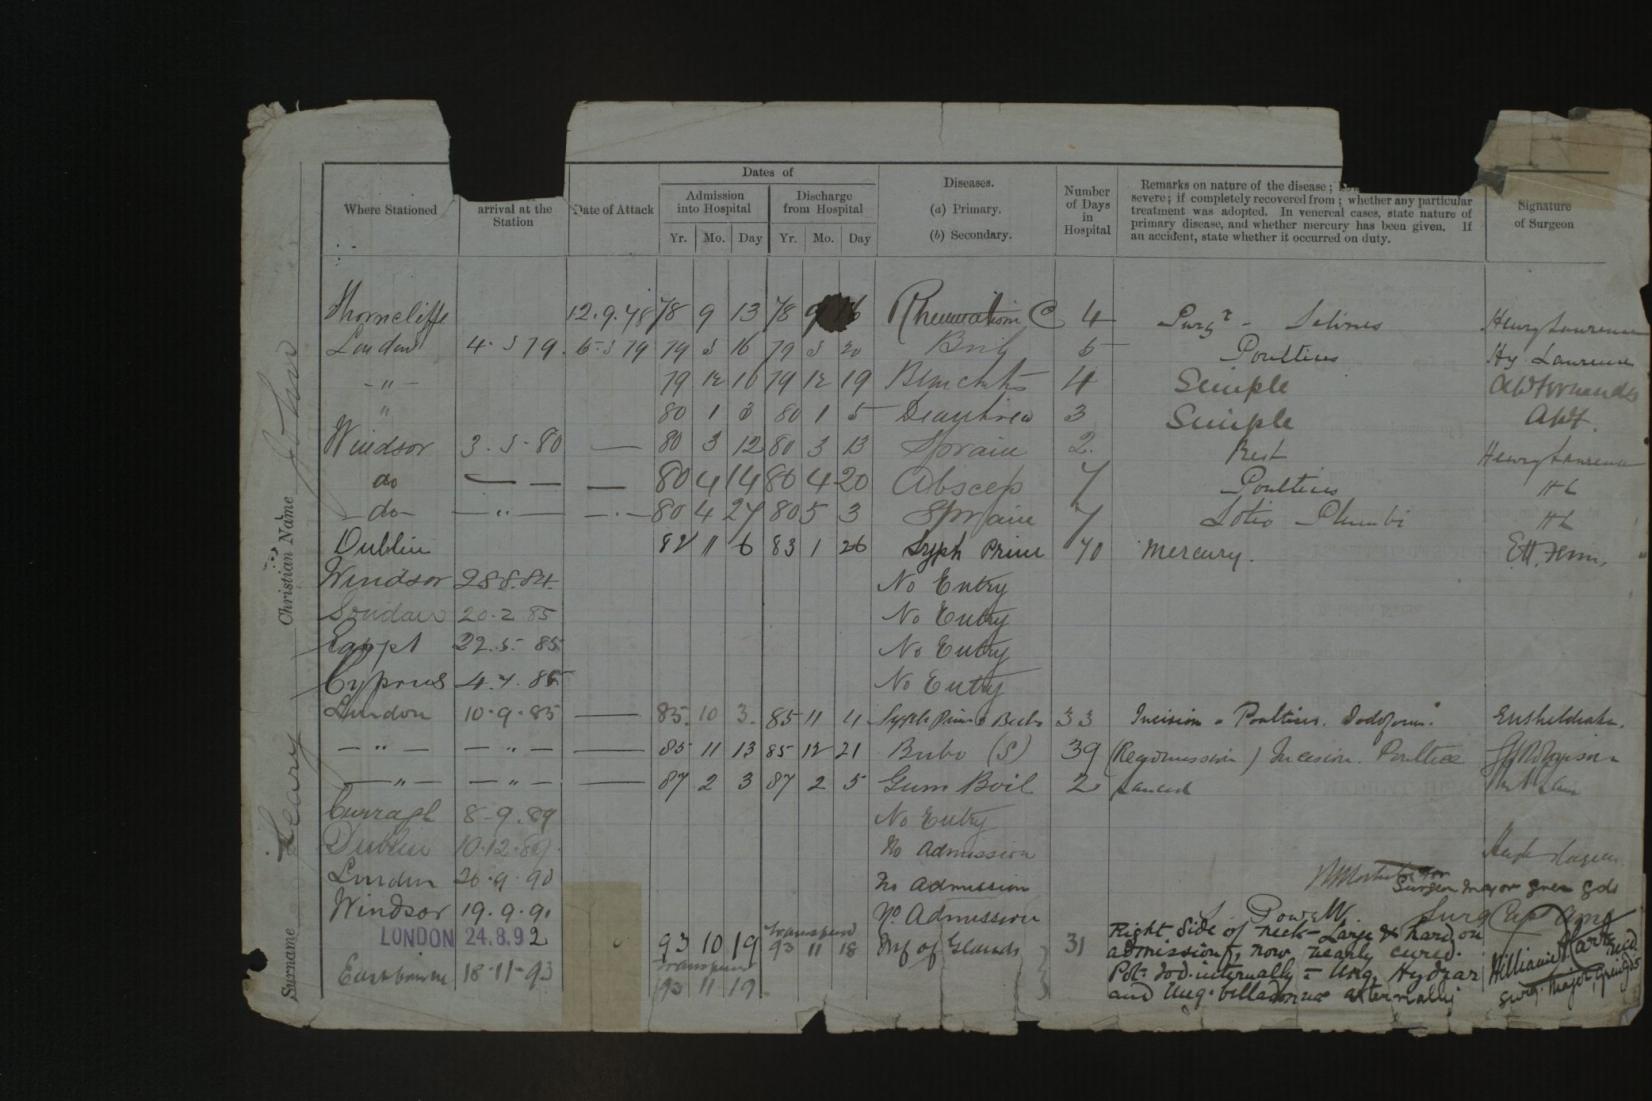 Dates of
Where Stationed arrival at the Station Date of Attack Admission into Hospital Discharge from Hospital Diseases. (a) Primary. (b) Secondary. Number of Days in Hospital
Remarks on nature of the disease;
severe; if completely recovered from; whether any particular
treatment was adopted. In venereal cases, state nature of
primary disease, and whether mercury has been given. If
an accident, state whether it occurred on duty.
Signature of Surgeon
Yr. Mo. Day Yr. Mo. Day
Thorncliffe 12.9.78 78 9 13 78 9 16 Rheumatism C 4 Henry Lawrence
London 79 79 20 5 Poultices Hy Lawrence
-"- 79 12 16 79 12 19 4 Simple
" 80 1 3 80 1 5 Diarrhoea 3 Simple
Windsor 3.3.80 — 80 3 12 80 3 13 Sprain 2 Rest Henry Lawrence
do — — — 80 4 14 80 4 20 Abscess 7 Poultices HL
-do- — " — — " — 80 4 27 80 5 3 Sprain 7 Lotio Plumbi HL
Dublin 82 11 6 83 1 26 Syph Prim 70 Mercury.
Windsor 28.8.84 No Entry
Soudan 20.2.85 No Entry
Egypt 22.5.85 No Entry
Cyprus 4.7.85 No Entry
London 10.9.85 — 85 10 3 85 11 4 Syph Prim & Bubo 33 Incision Poultices. Iodoform.
— " — — " — — 85 11 13 85 12 21 Bubo (S) 39 (Readmission) Incision. Poultice
— " — — " — — 87 2 3 87 2 5 Gum Boil 2 Lanced
Curragh 8-9.89 No Entry
Dublin 10.12.89 No Admission
London 20.9.90 No Admission
Surgeon Major Gren Gds
Windsor 19.9.91 No Admission Powell. Surg Cap
LONDON 24.8.92 93 10 19 transferred 93 11 18 Inf of Glands 31
Right side of neck - Large & hard on
admission, now nearly cured.
Pot: Iod. internally - Ung. Hydrar
and Ung. belladonnae externally
Eastbourne 18-11-93 transferred 93 11 19
Surg. Major
Surname Leary Christian Name